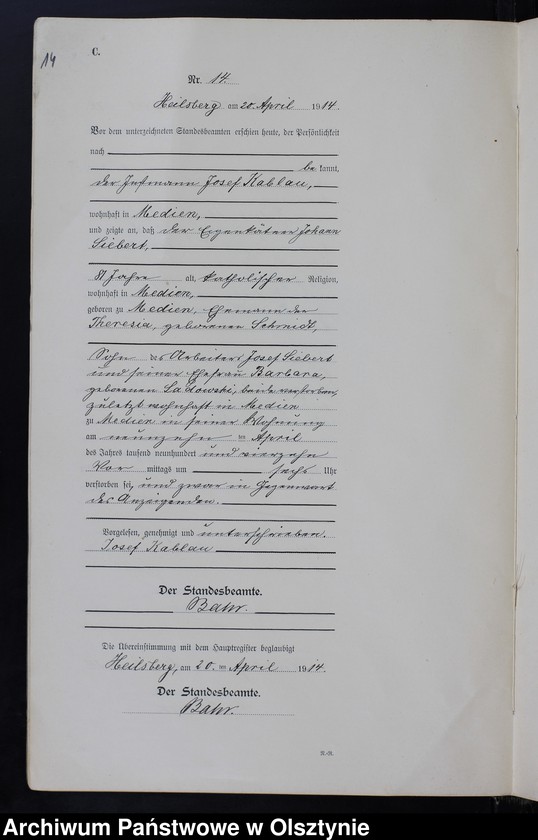 14
C.
Nr. 14.
Heilsberg am 20. April 1914.
Vor dem unterzeichneten Standesbeamten erschien heute, der Persönlichkeit
nach
be kannt,
der Instmann Josef Kablau,
wohnhaft in Medien,
und zeigte an, daß der Eigenkätner Johann
Siebert,
81 Jahre alt, katholischer Religion,
wohnhaft in Medien,
geboren zu Medien, Ehemann der
Theresia, geborenen Schmidt,
Sohn des Arbeiters Josef Siebert
und seiner Ehefrau Barbara,
geborenen Ladowski, beide verstorben,
zuletzt wohnhaft in Medien
zu Medien in seiner Wohnung
am neunzehn ten April
des Jahres tausend neunhundert und vierzehn
Vor mittags um sechs Uhr
verstorben sei, und zwar in Gegenwart
des Anzeigenden.
Vorgelesen, genehmigt und unterschrieben.
Josef Kablau
Der Standesbeamte.
Bahr.
Die Übereinstimmung mit dem Hauptregister beglaubigt
Heilsberg, am 20. ten April 1914.
Der Standesbeamte.
Bahr.
Archiwum Państwowe w Olsztynie